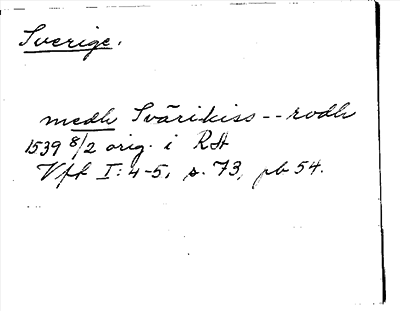 Sverige.
medh Svärikiss -- rodh
1539 8/2 orig. i RA
Vfr I: 4-5, s. 73, pb 54.